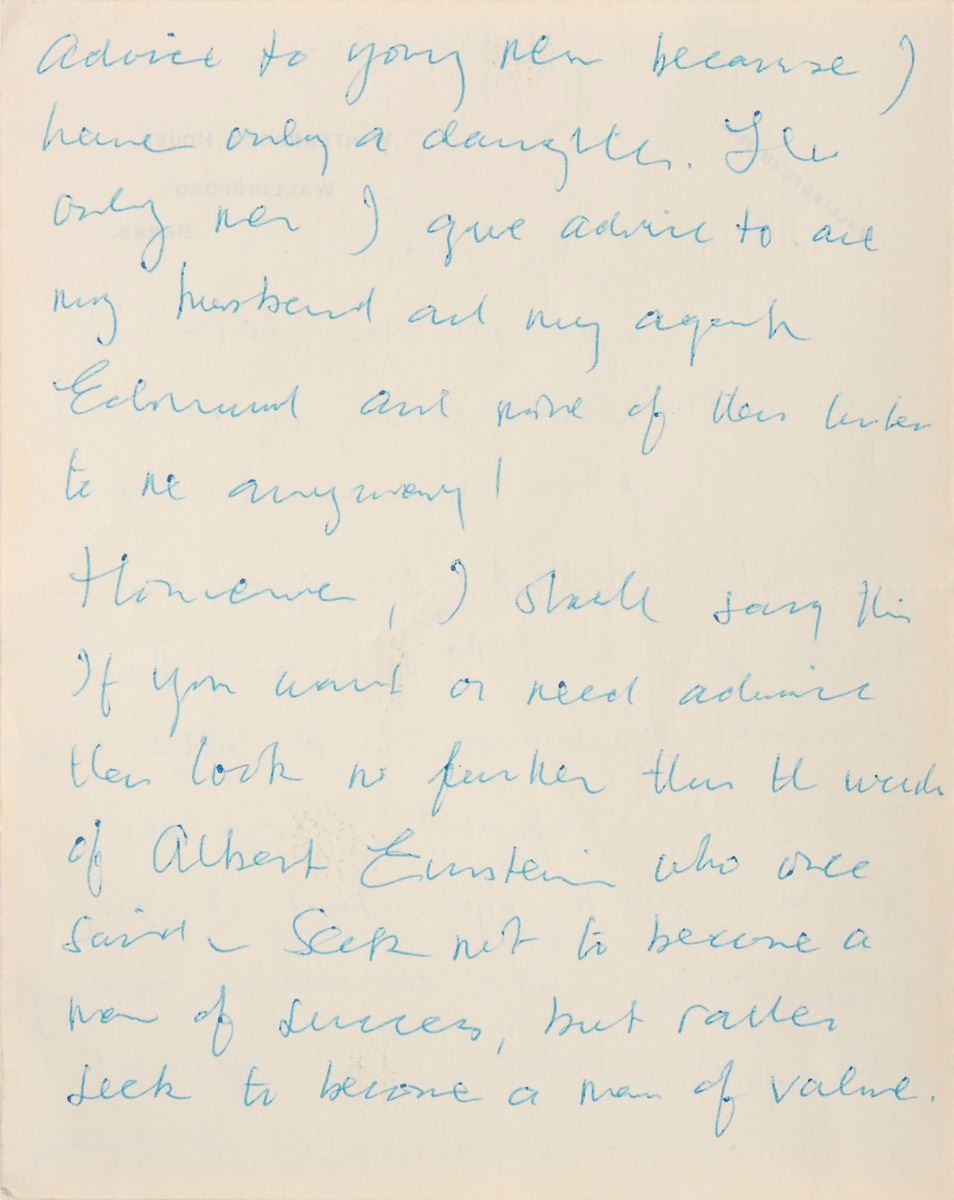 Advice to young men because I
have only a daughter. The
only men I give advice to are
my husband and my agent
Edmund and none of them listen
to me anyway!
However, I shall say this
If you want or need advice
then look no further than the words
of Albert Einstein who once
said - Seek not to become a
man of success, but rather
seek to become a man of value.